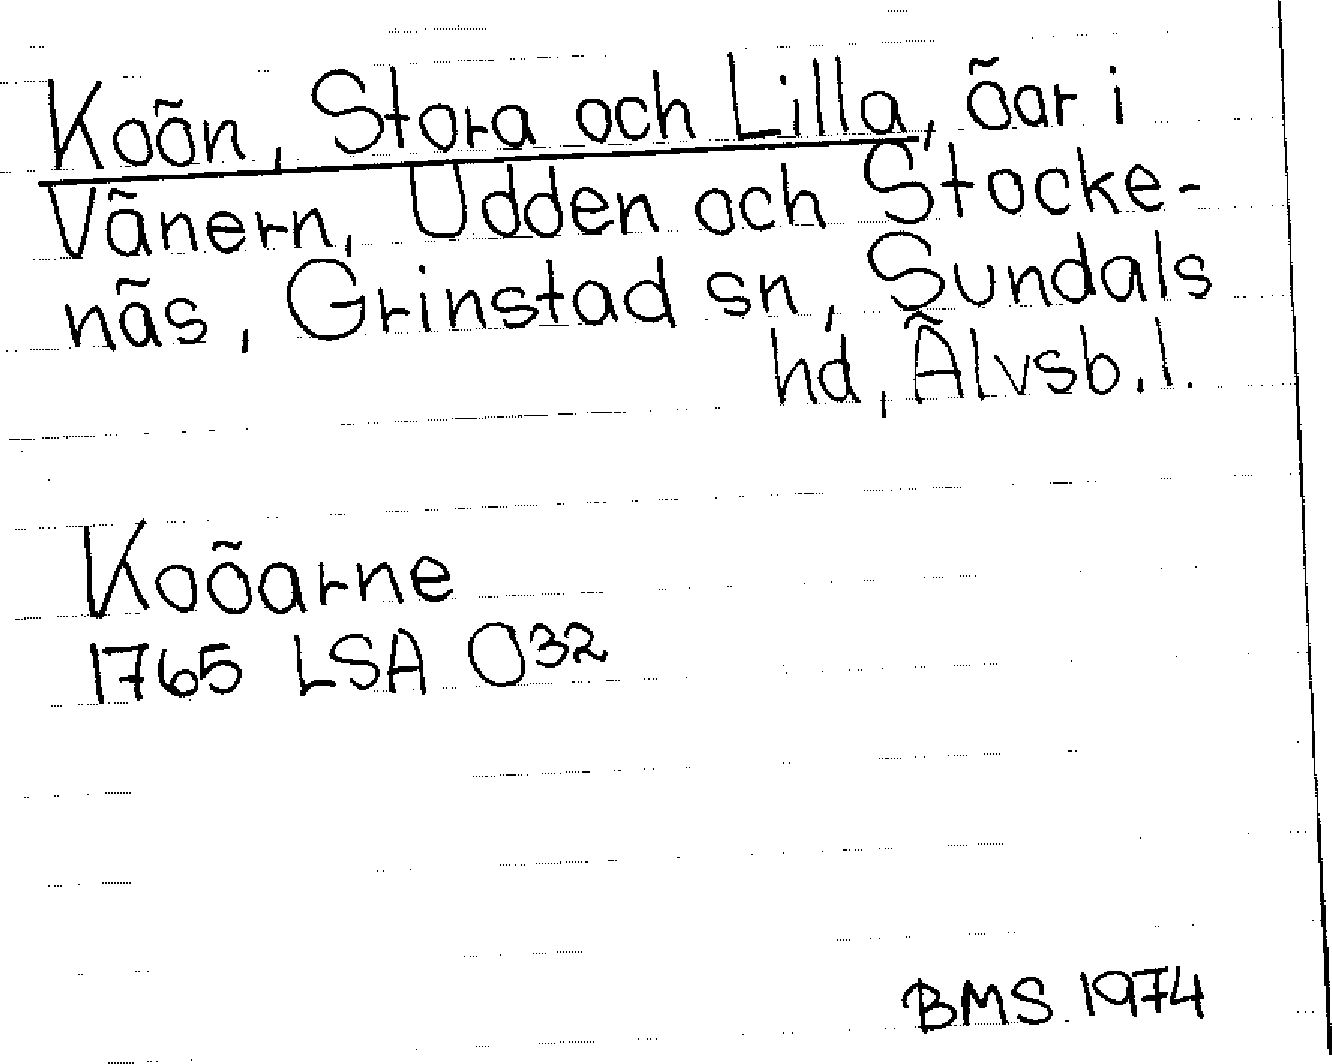 Koön, Stora och Lilla, öar i
Vänern, Udden och Stocke-
näs, Grinstad sn, Sundals
hd, Älvsb. l.
Koöarne
1765 LSA O32
BMS 1974